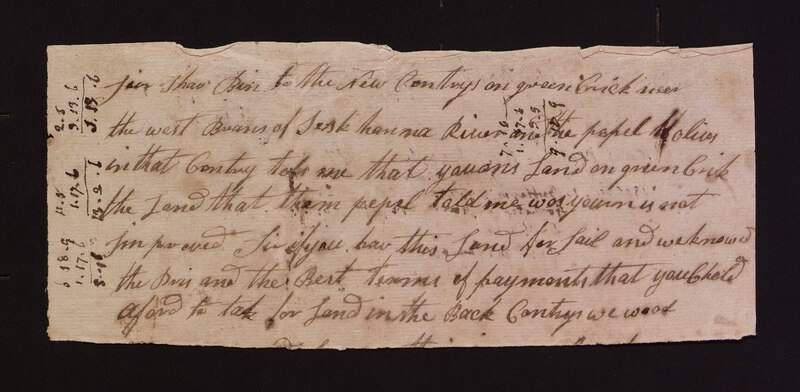 Sir I hav Bin to the New Contrys on green Crick near
the west Brans of Seskhanna River and the pepel th olives
in that Contry tols me that you ons Land on green Crik
the Land that them pepel told me wos yourn is not
Improved Sir if you hav this Land for Sail and we knowed
the Pris and the Best terms of payments that you Chold
aford to tak for Land in the Back Contrys we woot
2.5
3.17.6
5.19.6
11.5
1.17.6
13.2.6
6 18.9
1.17.6
7.6
1.17.6
9.18.9